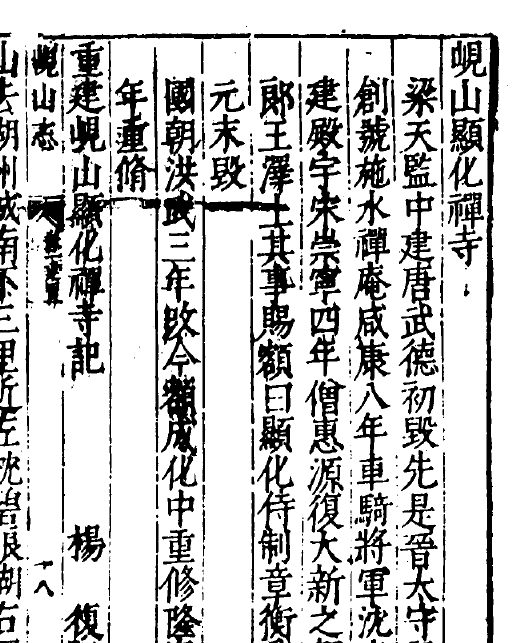 峴山顯化禪寺
梁天監中建唐武德初毀先是晉太守
創號施水禪庵咸康八年車騎將軍沈
建殿宇宋崇寧四年僧惠源復大新之
郞王澤上其事賜額曰顯化侍制章衡
元末毀
國朝洪武三年改今額成化中重修隆
年重脩
重建峴山顯化禪寺記 楊 復
峴山志 十八
山去湖州城南不三里所左沈岩限湖右